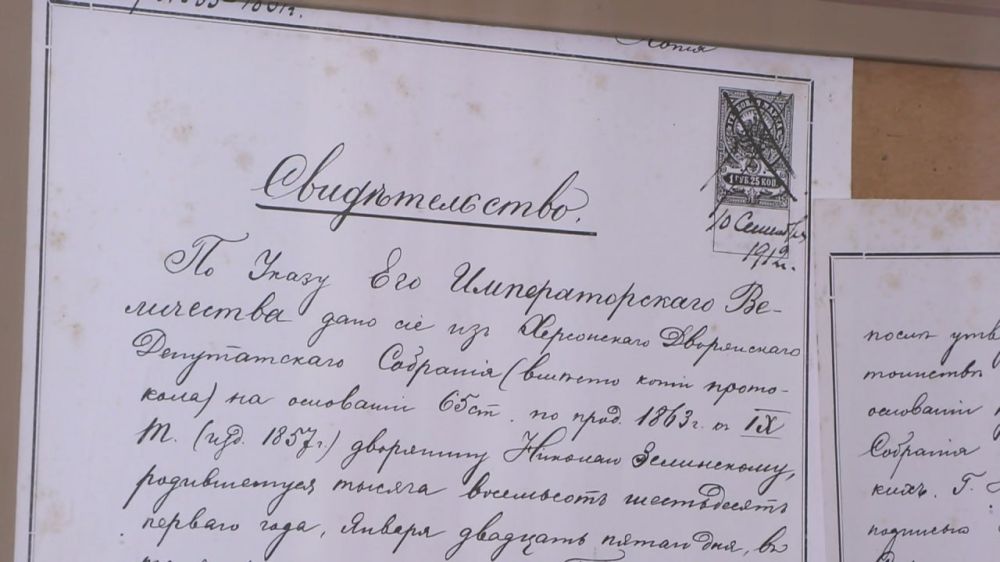 Копія
Свидѣтельство.
1 РУБ. 25 КОП.
10 Сентября
1912 г.
По Указу Его Императорскаго Ве-
личества дано сіе изъ Херсонскаго Дворянскаго
Депутатскаго Собранія (вмѣсто копіи прото-
кола) на основаніи 65 ст. по прод. 1863 г. къ IX
Т. (изд. 1857 г.) дворянину Николаю Зелинскому,
родившемуся тысяча восемьсотъ шестьдесятъ
перваго года, Января двадцать пятаго дня, въ
послѣ утв
тоинствѣ
основаніи
Собранія
кихъ. Г.
подписью